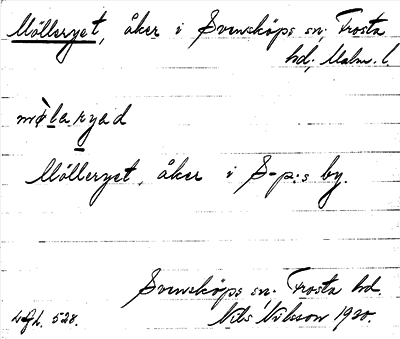 Mölleryet, åker i Svensköps sn, Frosta
hd, Malm. l.
mø̀laryad
Mölleryet, åker i S-p:s by.
Svensköps sn. Frosta hd.
Nils Nilsson 1920.
528.